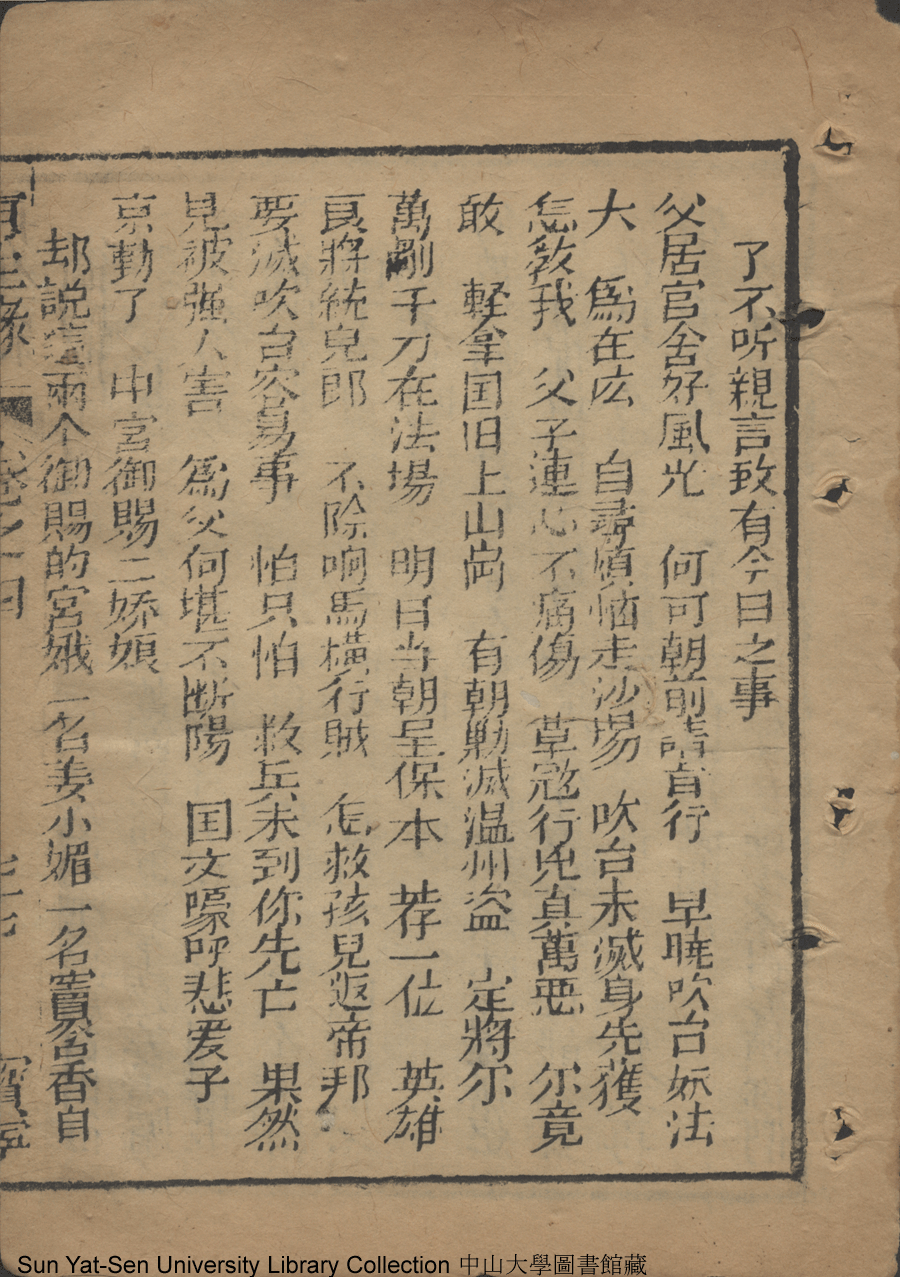 了不听親言致有今日之事
父居官舍好風光 何可朝前請首行 早曉吹台妖法
大 爲在広 自尋煩恼走沙場 吹台未滅身先獲
怎教我 父子連心不痛傷 草寇行兇真萬惡 尔竟
敢 軽拿国旧上山崗 有朝勦滅温州盗 定將尔
萬剮千刀在法場 明日当朝呈保本 荐一位 英雄
良將統兒郎 不除响馬橫行賊 怎救孩兒返帝邦
要滅吹台容易事 怕只怕 救兵未到你先亡 果然
見被强人害 爲父何堪不断腸 国丈嚎呼悲爱子
京動了 中宮御賜二娇娘
却説這兩个御賜的宮娥一名姜小媚一名竇含香自
卷之十四
Sun Yat-Sen University Library Collection 中山大學圖書館藏